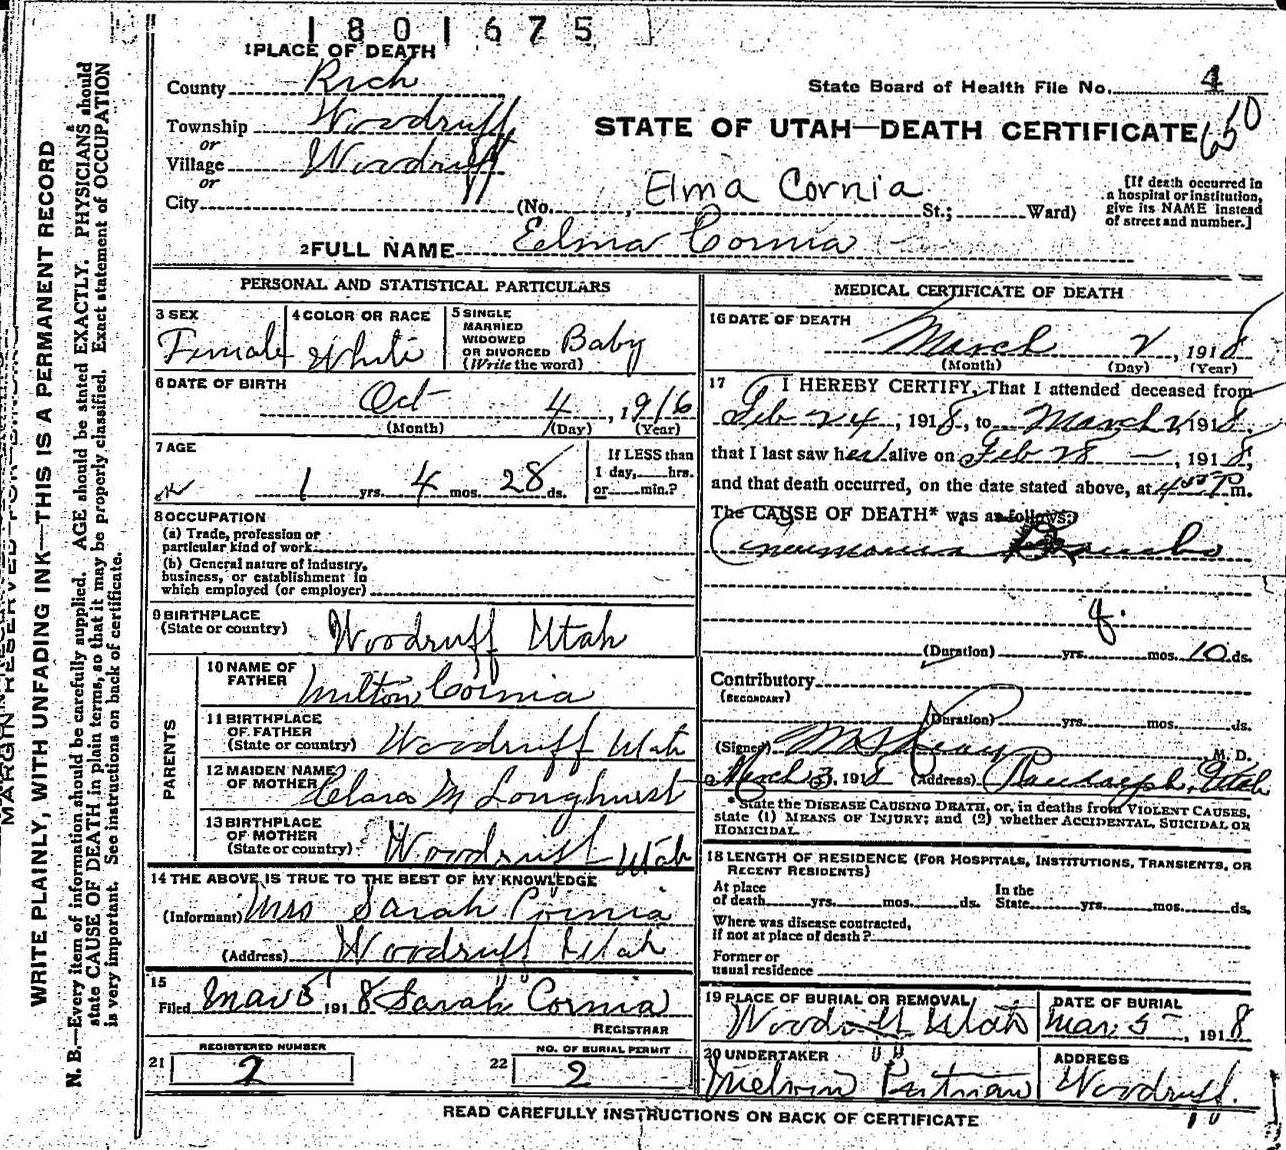 1801675
1 PLACE OF DEATH
County Rich
State Board of Health File No. 4
Township Woodruff
STATE OF UTAH—DEATH CERTIFICATE 650
or
Village Woodruff
or
City (No. , Elma Cornia St.; Ward)
[If death occurred in
a hospital or institution,
give its NAME instead
of street and number.]
2 FULL NAME Elma Cornia
PERSONAL AND STATISTICAL PARTICULARS
3 SEX
Female
4 COLOR OR RACE
White
5 SINGLE
MARRIED
WIDOWED
OR DIVORCED
(Write the word)
Baby
6 DATE OF BIRTH
Oct 4, 1916
(Month) (Day) (Year)
7 AGE
1 yrs. 4 mos. 28 ds.
If LESS than
1 day, hrs.
or min.?
8 OCCUPATION
(a) Trade, profession or
particular kind of work
(b) General nature of industry,
business, or establishment in
which employed (or employer)
9 BIRTHPLACE
(State or country) Woodruff Utah
PARENTS
10 NAME OF
FATHER Milton Cornia
11 BIRTHPLACE
OF FATHER
(State or country) Woodruff Utah
12 MAIDEN NAME
OF MOTHER Clara M Longhurst
13 BIRTHPLACE
OF MOTHER
(State or country) Woodruff Utah
14 THE ABOVE IS TRUE TO THE BEST OF MY KNOWLEDGE
(Informant) Mrs Sarah Cornia
(Address) Woodruff Utah
15
Filed Mar 5 1918 Sarah Cornia
REGISTRAR
REGISTERED NUMBER
21 2
NO. OF BURIAL PERMIT
22 2
MEDICAL CERTIFICATE OF DEATH
16 DATE OF DEATH
March 2, 1918
(Month) (Day) (Year)
17 I HEREBY CERTIFY, That I attended deceased from
Feb 24, 1918, to March 2, 1918,
that I last saw her alive on Feb 28, 1918,
and that death occurred, on the date stated above, at 4 P m.
The CAUSE OF DEATH* was as follows:
Pneumonia Broncho
(Duration) yrs. mos. 10 ds.
Contributory
(SECONDARY)
(Duration) yrs. mos. ds.
(Signed) M. D.
March 3, 1918 (Address) Randolph, Utah
*State the DISEASE CAUSING DEATH, or, in deaths from VIOLENT CAUSES,
state (1) MEANS OF INJURY; and (2) whether ACCIDENTAL, SUICIDAL OR
HOMICIDAL.
18 LENGTH OF RESIDENCE (FOR HOSPITALS, INSTITUTIONS, TRANSIENTS, OR
RECENT RESIDENTS)
At place In the
of death yrs. mos. ds. State yrs. mos. ds.
Where was disease contracted,
if not at place of death?
Former or
usual residence
19 PLACE OF BURIAL OR REMOVAL
Woodruff Utah
DATE OF BURIAL
Mar. 5, 1918
20 UNDERTAKER
Melvin Putnam
ADDRESS
Woodruff.
READ CAREFULLY INSTRUCTIONS ON BACK OF CERTIFICATE
MARGIN RESERVED FOR BINDING
WRITE PLAINLY, WITH UNFADING INK—THIS IS A PERMANENT RECORD
N. B.—Every item of information should be carefully supplied. AGE should be stated EXACTLY. PHYSICIANS should
state CAUSE OF DEATH in plain terms, so that it may be properly classified. Exact statement of OCCUPATION
is very important. See instructions on back of certificate.